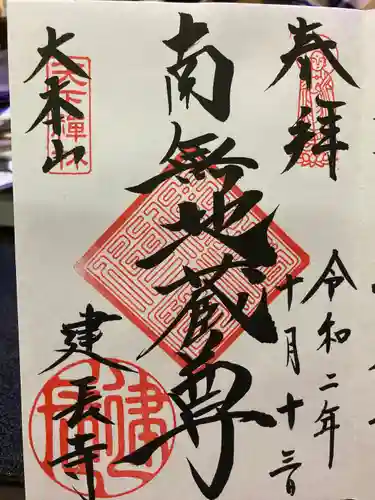 奉拝
令和二年
十月十三日
南無地蔵尊
大本山
天下禅林
建長寺